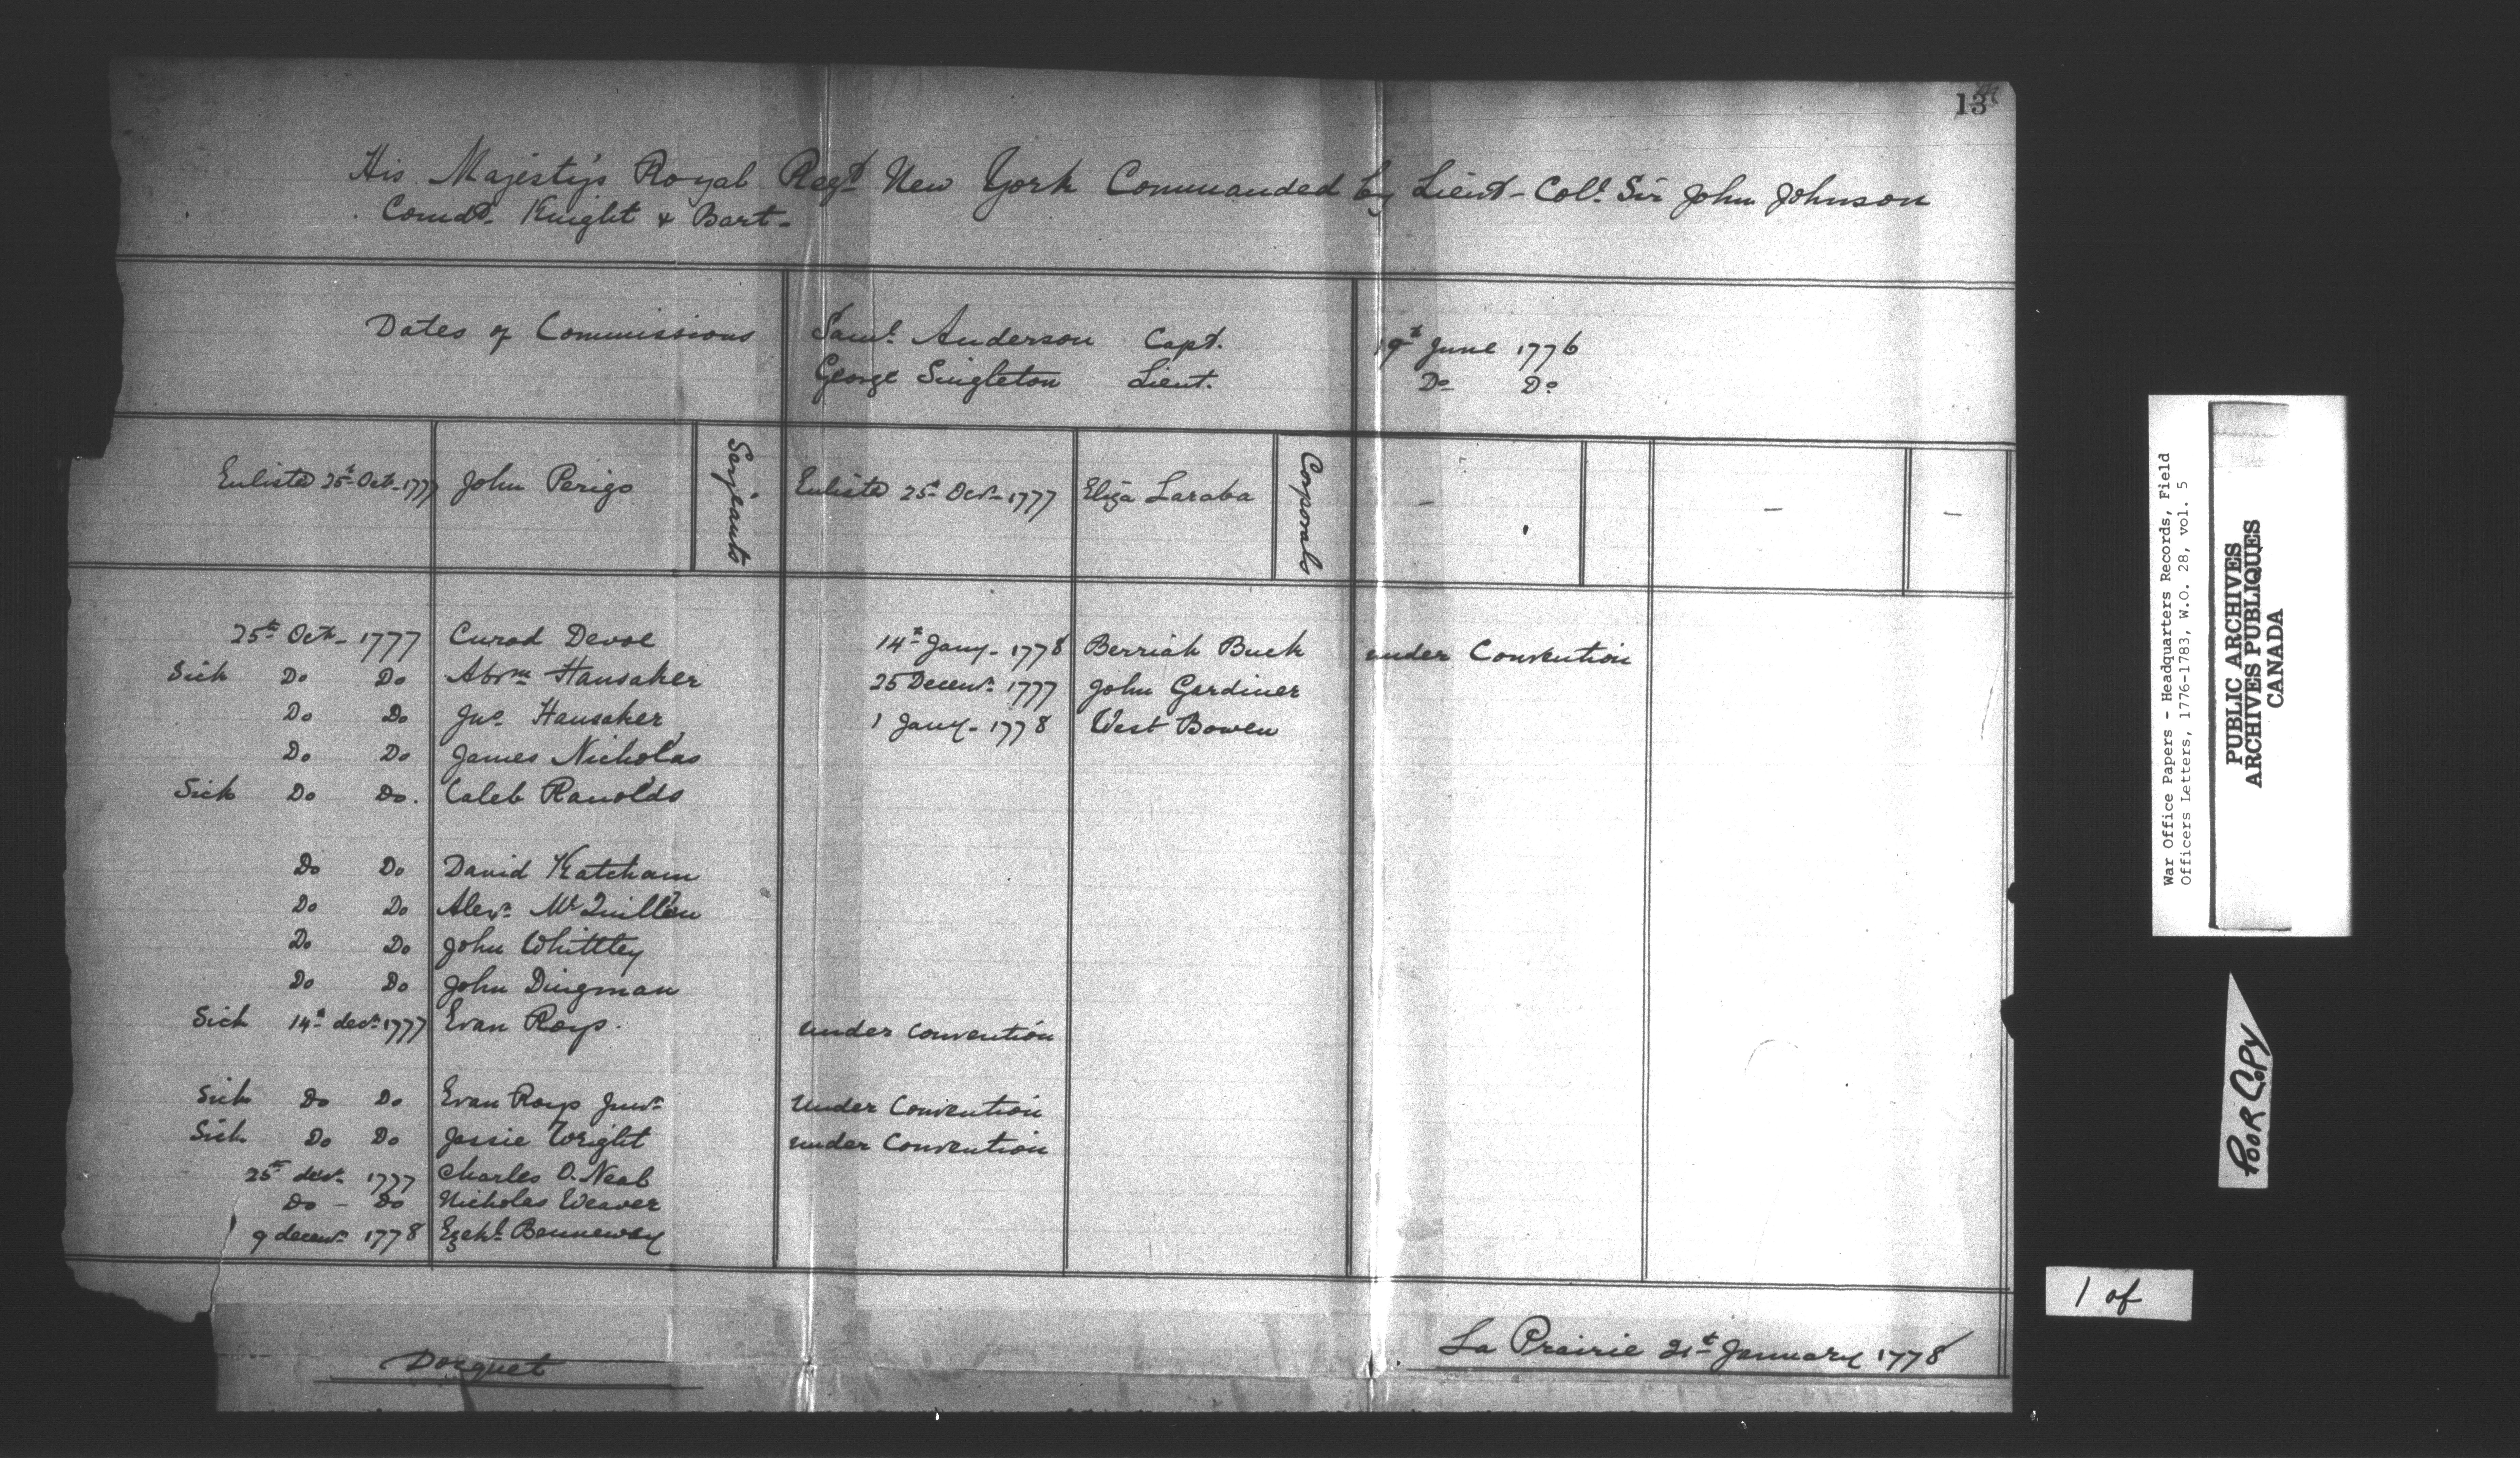 13
His Majesty's Royal Regt New York Commanded by Lieut-Coll. Sir John Johnson
Comdt. Knight & Bart-
Dates of Commissions Saml. Anderson Capt. 19t June 1776
George Singleton Lieut. Do Do
Enlisted 25t Oct-1777 John Perigo Serjeants Enlisted 25t Oct-1777 Eliza Laraba Corporals - - -
25th Oct- 1777 Curod Devoe 14t Jany- 1778 Berriah Buck under Convention
Sick Do Do Abrm Hansaker 25 Decemr 1777 John Gardiner
Do Do Jno. Hansaker 1 Jany- 1778 West Bowen
Do Do James Nicholas
Sick Do Do. Caleb Ranolds
Do Do David Katcham
Do Do Alexr. McQuillen
Do Do John Whittley
Do Do John Dingman
Sick 14t decr 1777 Evan Roys. under convention
Sick Do Do Evan Roys Junr Under Convention
Sick Do Do Jessie Wright under Convention
25th decr. 1777 Charles O.Neal
Do - Do Nicholas Weaver
9 decemr 1778 Ezekl. Benneway
La Prairie 21t January 1778
Docquet
War Office Papers - Headquarters Records, Field
Officers Letters, 1776-1783, W.O. 28, vol. 5
PUBLIC ARCHIVES
ARCHIVES PUBLIQUES
CANADA
POOR COPY
1 of